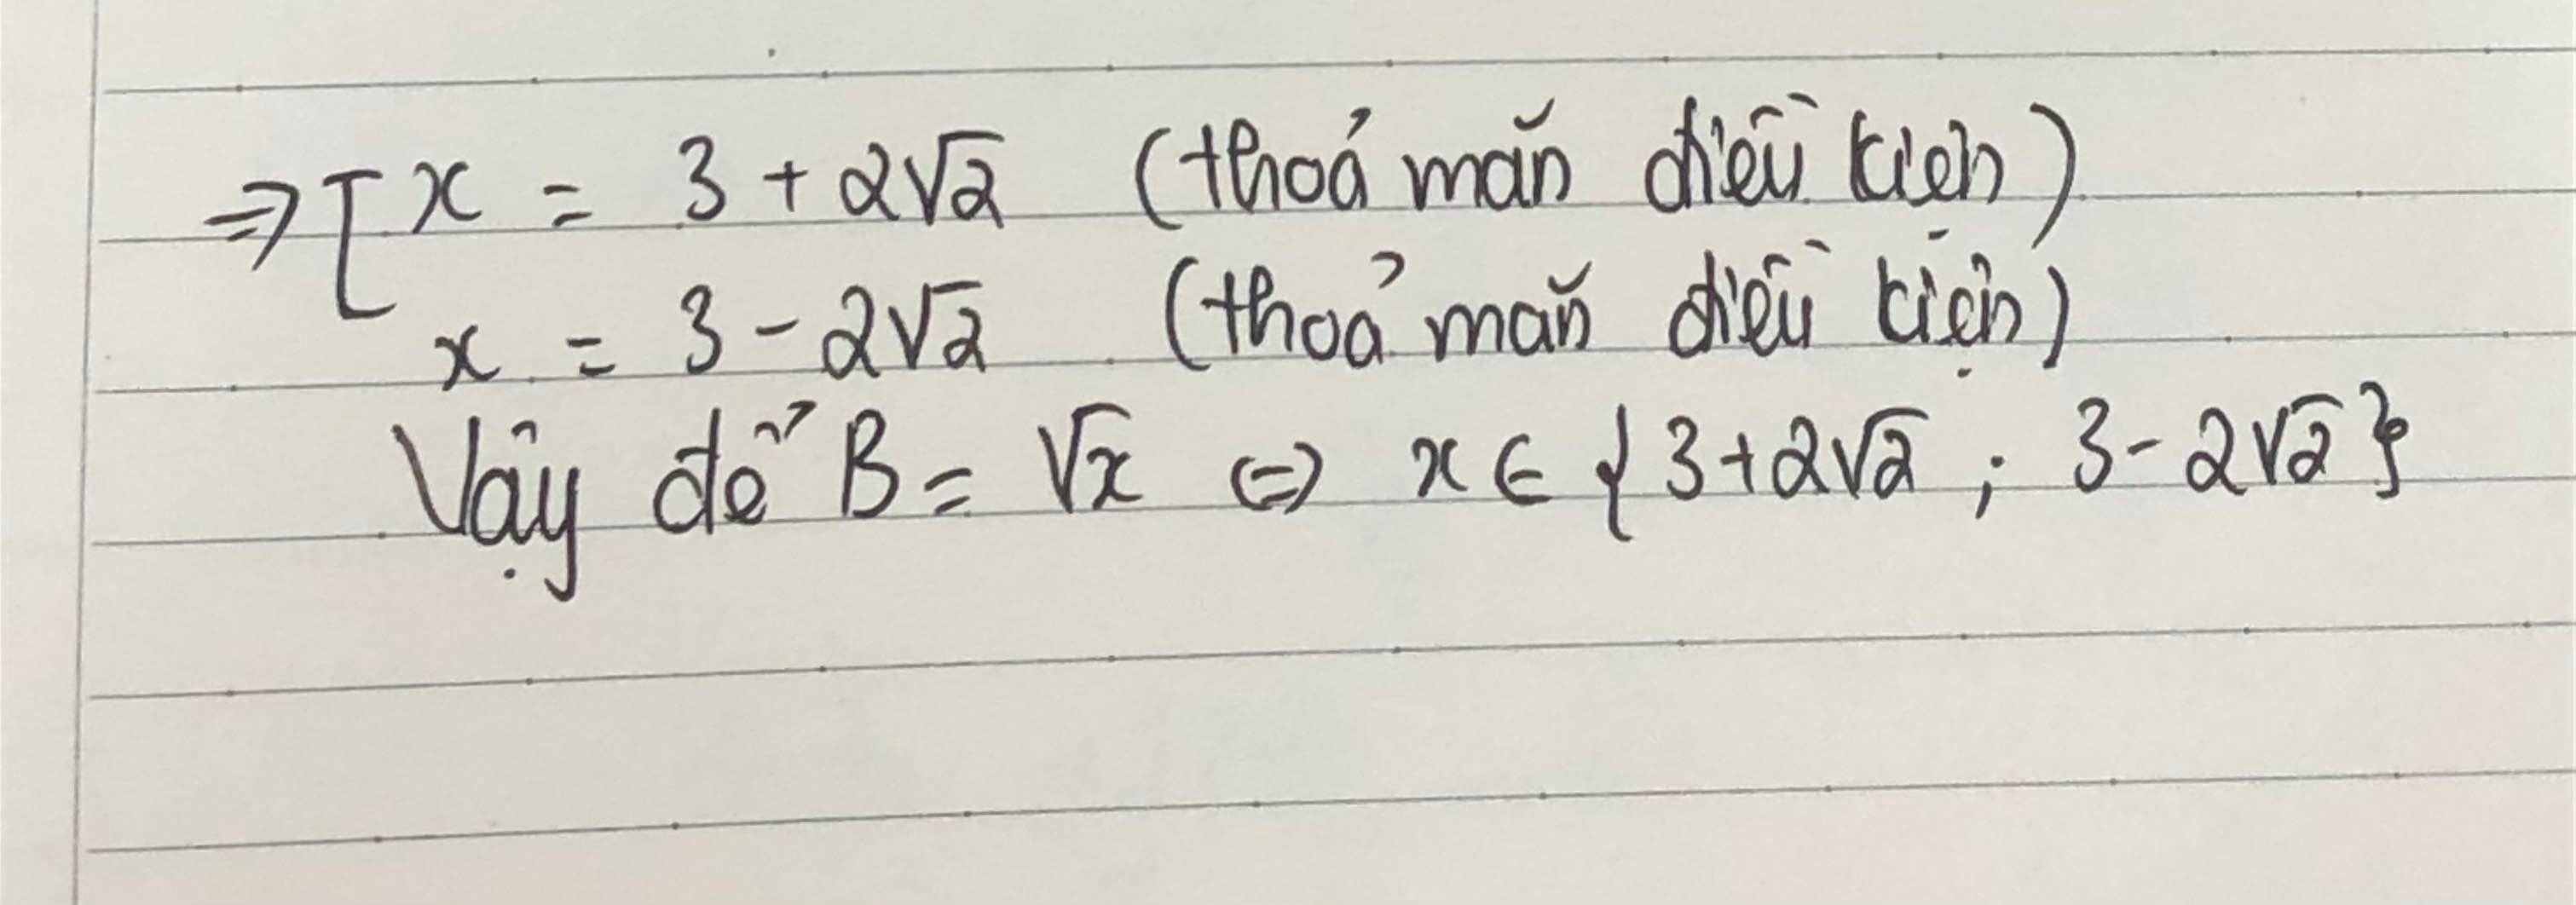 ⇒ [ x = 3 + 2√2 (thoả mãn điều kiện)
x = 3 - 2√2 (thoả mãn điều kiện)
Vậy để B = √x ⇔ x ∈ {3+2√2 ; 3-2√2}